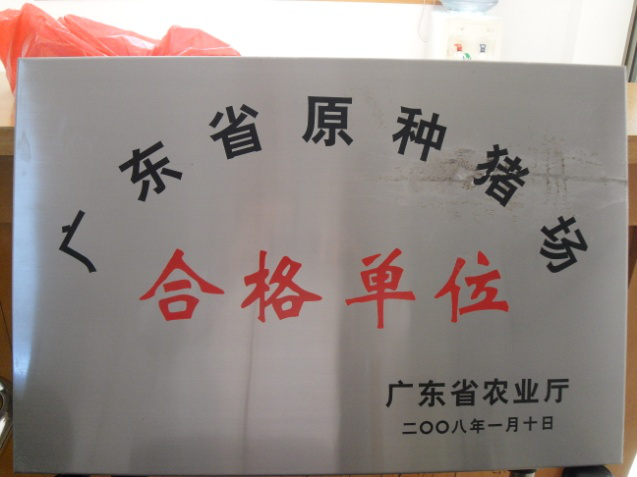 广东省原种猪场
合格单位
广东省农业厅
二〇〇八年一月十日